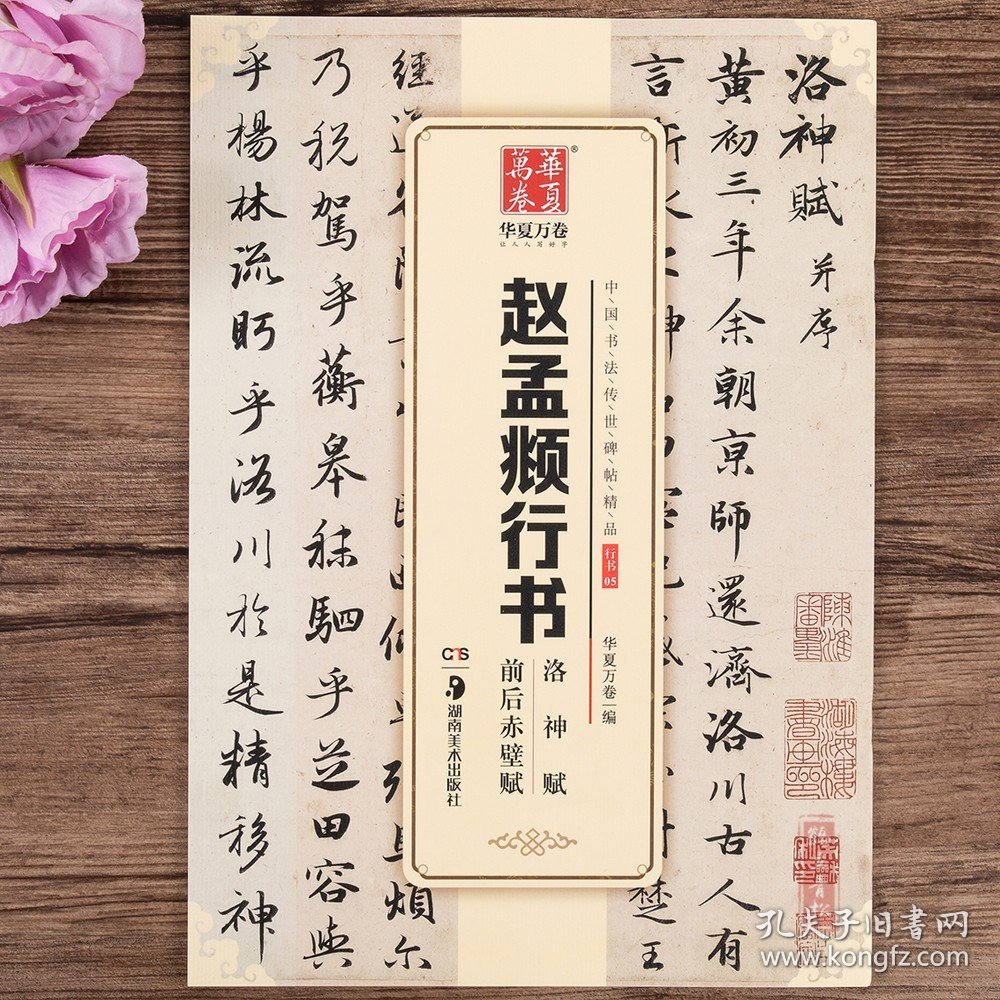 洛神賦并序
黄初三年余朝京師還濟洛川古人有
言
楚王
經
煩尔
乃税駕乎蘅皋秣駟乎芝田容與
乎楊林流眄乎洛川於是精移神
華夏萬卷®
华夏万卷
让人人写好字
中国书法传世碑帖精品
行书05
华夏万卷 编
赵孟頫行书
洛神赋
前后赤壁赋
CNS
湖南美术出版社
孔夫子旧书网
www.kongfz.com